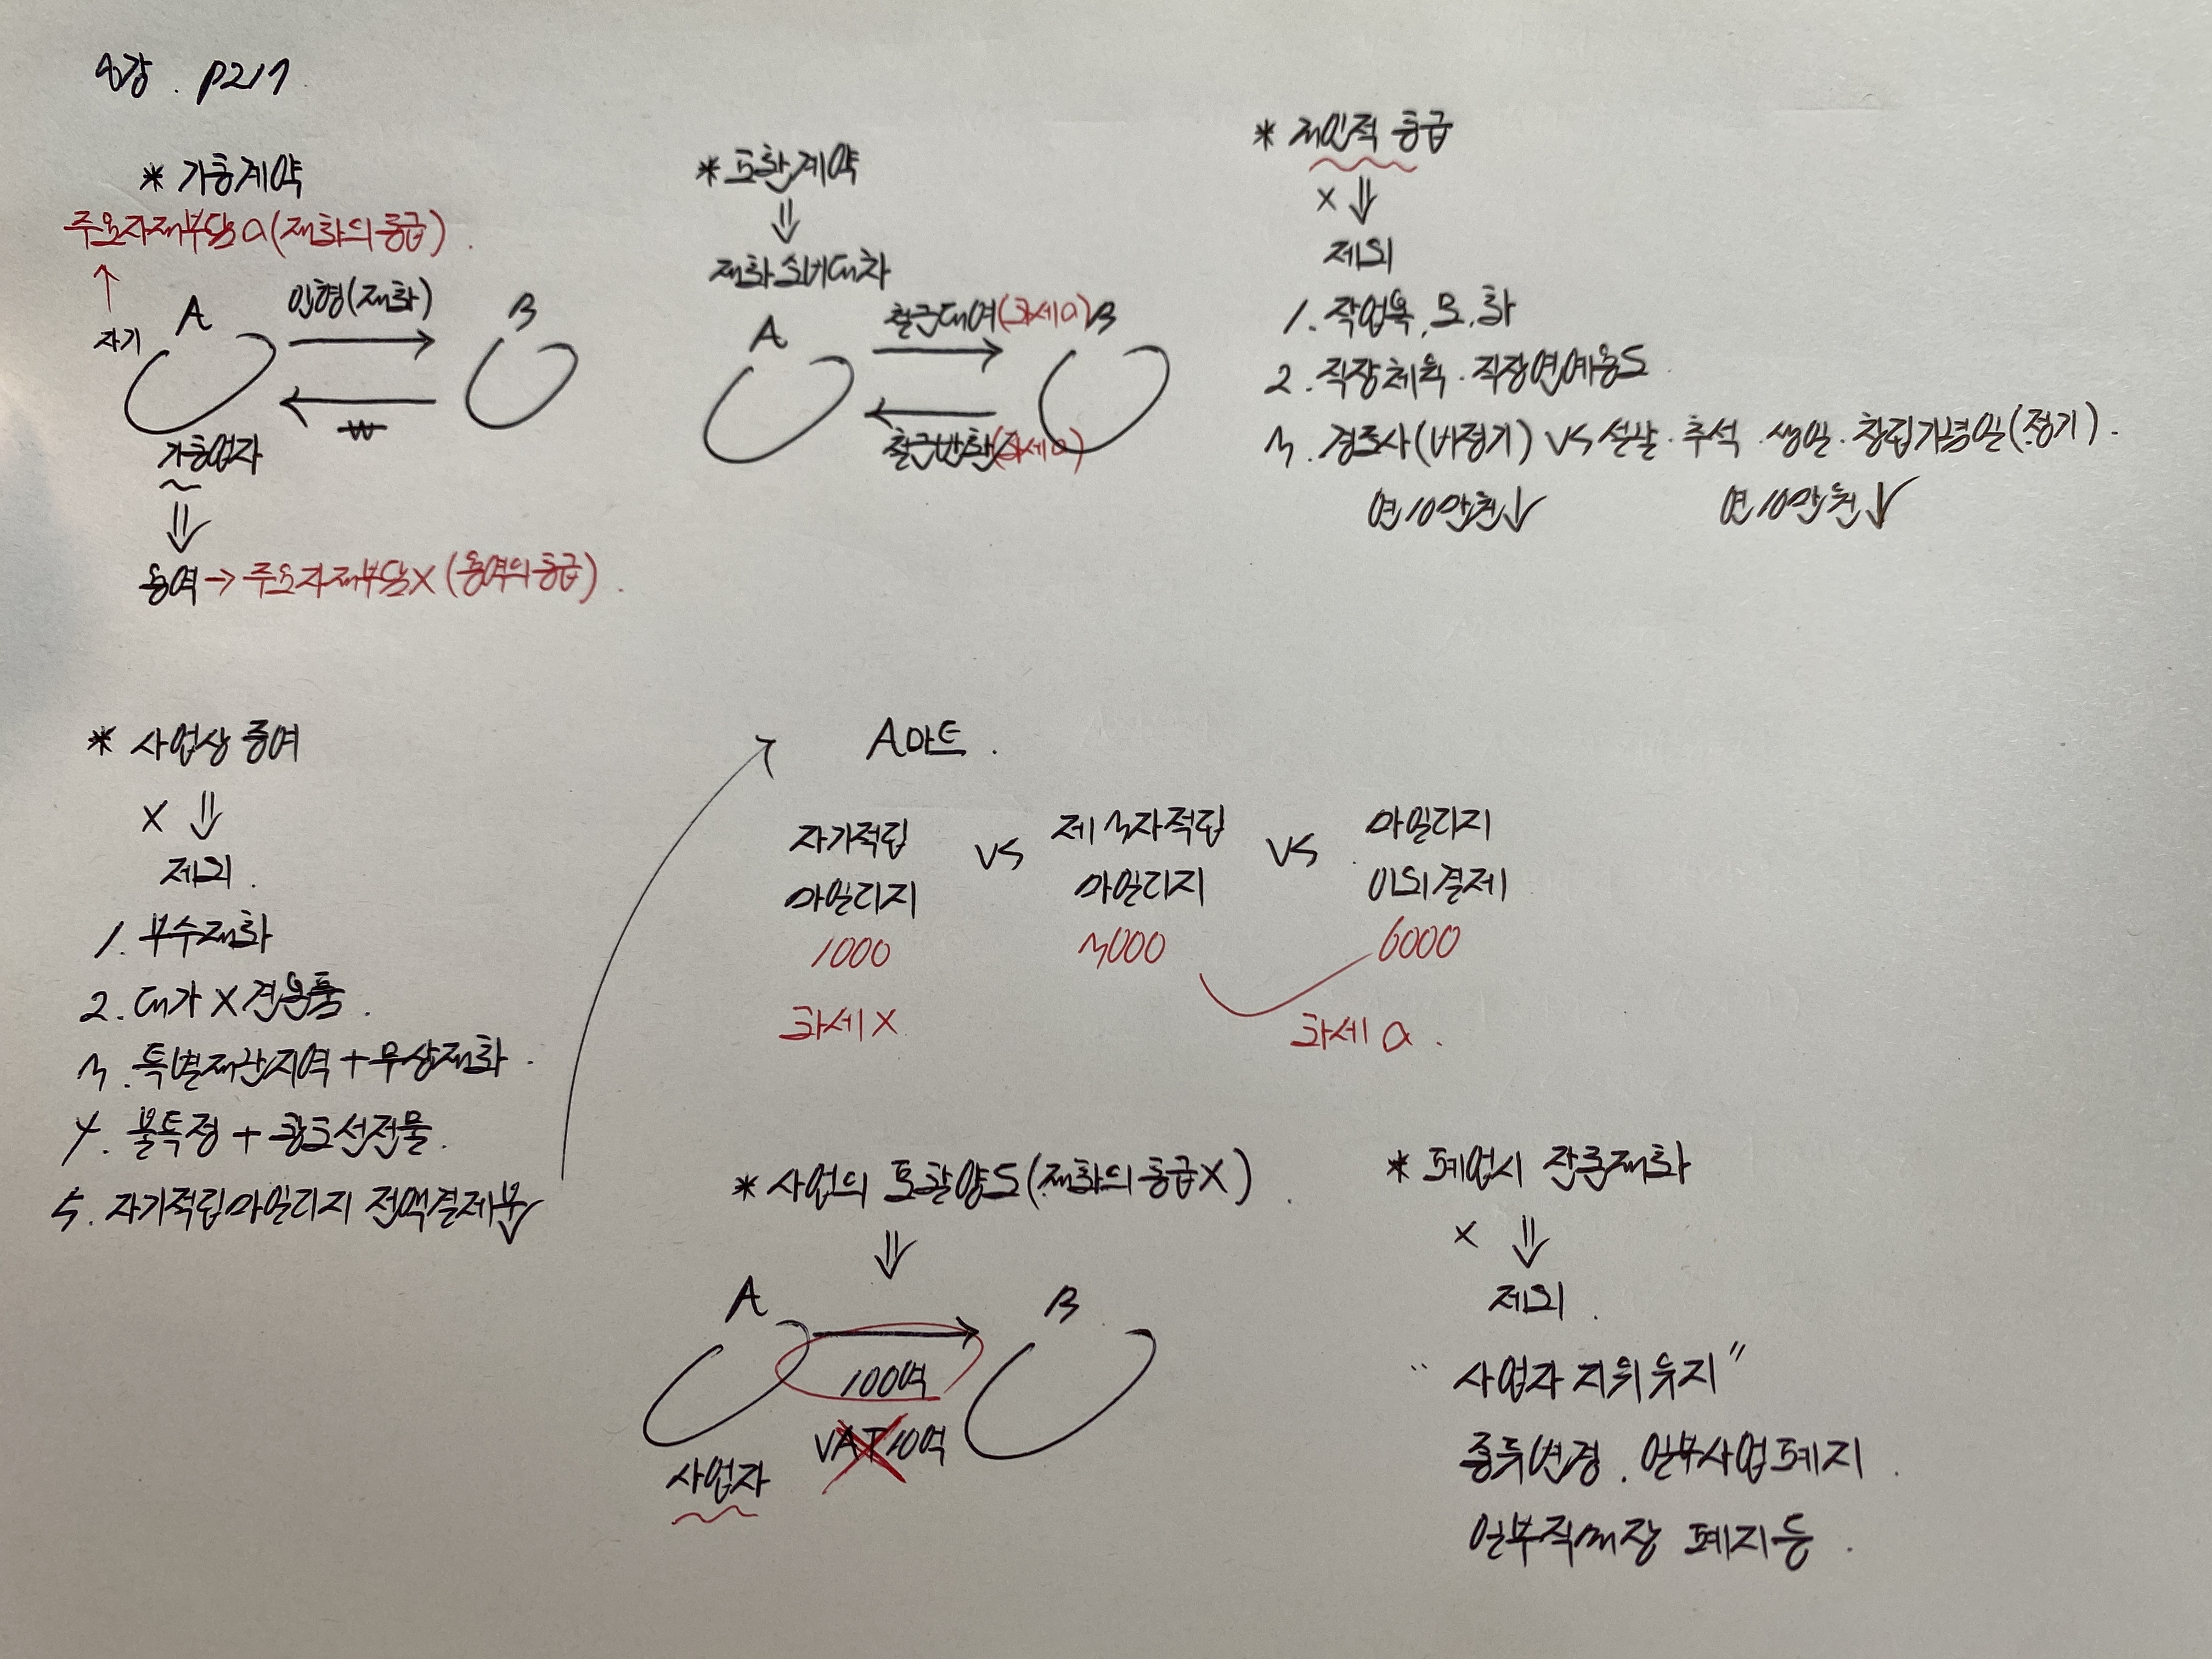 4강. P217
* 가공계약
주요자재부담O(재화의공급).
자기
A
인형(재화)
B
₩
가공업자
용역→주요자재부담X(용역의공급).
* 교환계약
재화소비대차
A
철근대여(과세O)
B
철근반환(과세O)
* 개인적 공급
X
제외
1. 작업복, 모, 화
2. 직장체육. 직장연예용도
3. 경조사(비정기) VS 설날. 추석. 생일. 창립기념일(정기).
연10만원↓
연10만원↓
* 사업상 증여
X
제외.
1. 부수재화
2. 대가X견본품.
3. 특별재난지역+무상재화.
4. 불특정+광고선전물.
5. 자기적립마일리지 전액결제분
A마트.
자기적립
마일리지
1000
과세X
VS
제3자적립
마일리지
3000
VS
마일리지
이외결제
6000
과세O.
* 사업의 포괄양도(재화의공급X).
A
B
100억
VAT10억
사업자
* 폐업시 잔존재화
X
제외.
"사업자 지위유지"
종류변경. 일부사업폐지.
일부직매장 폐지등.